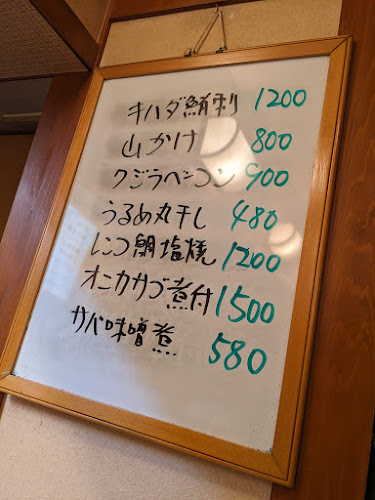 キハダ鮪刺 1200
山かけ 800
クジラベーコン 900
うるめ丸干し 480
レンコ鯛塩焼 1200
オニカサゴ煮付 1500
サバ味噌煮 580